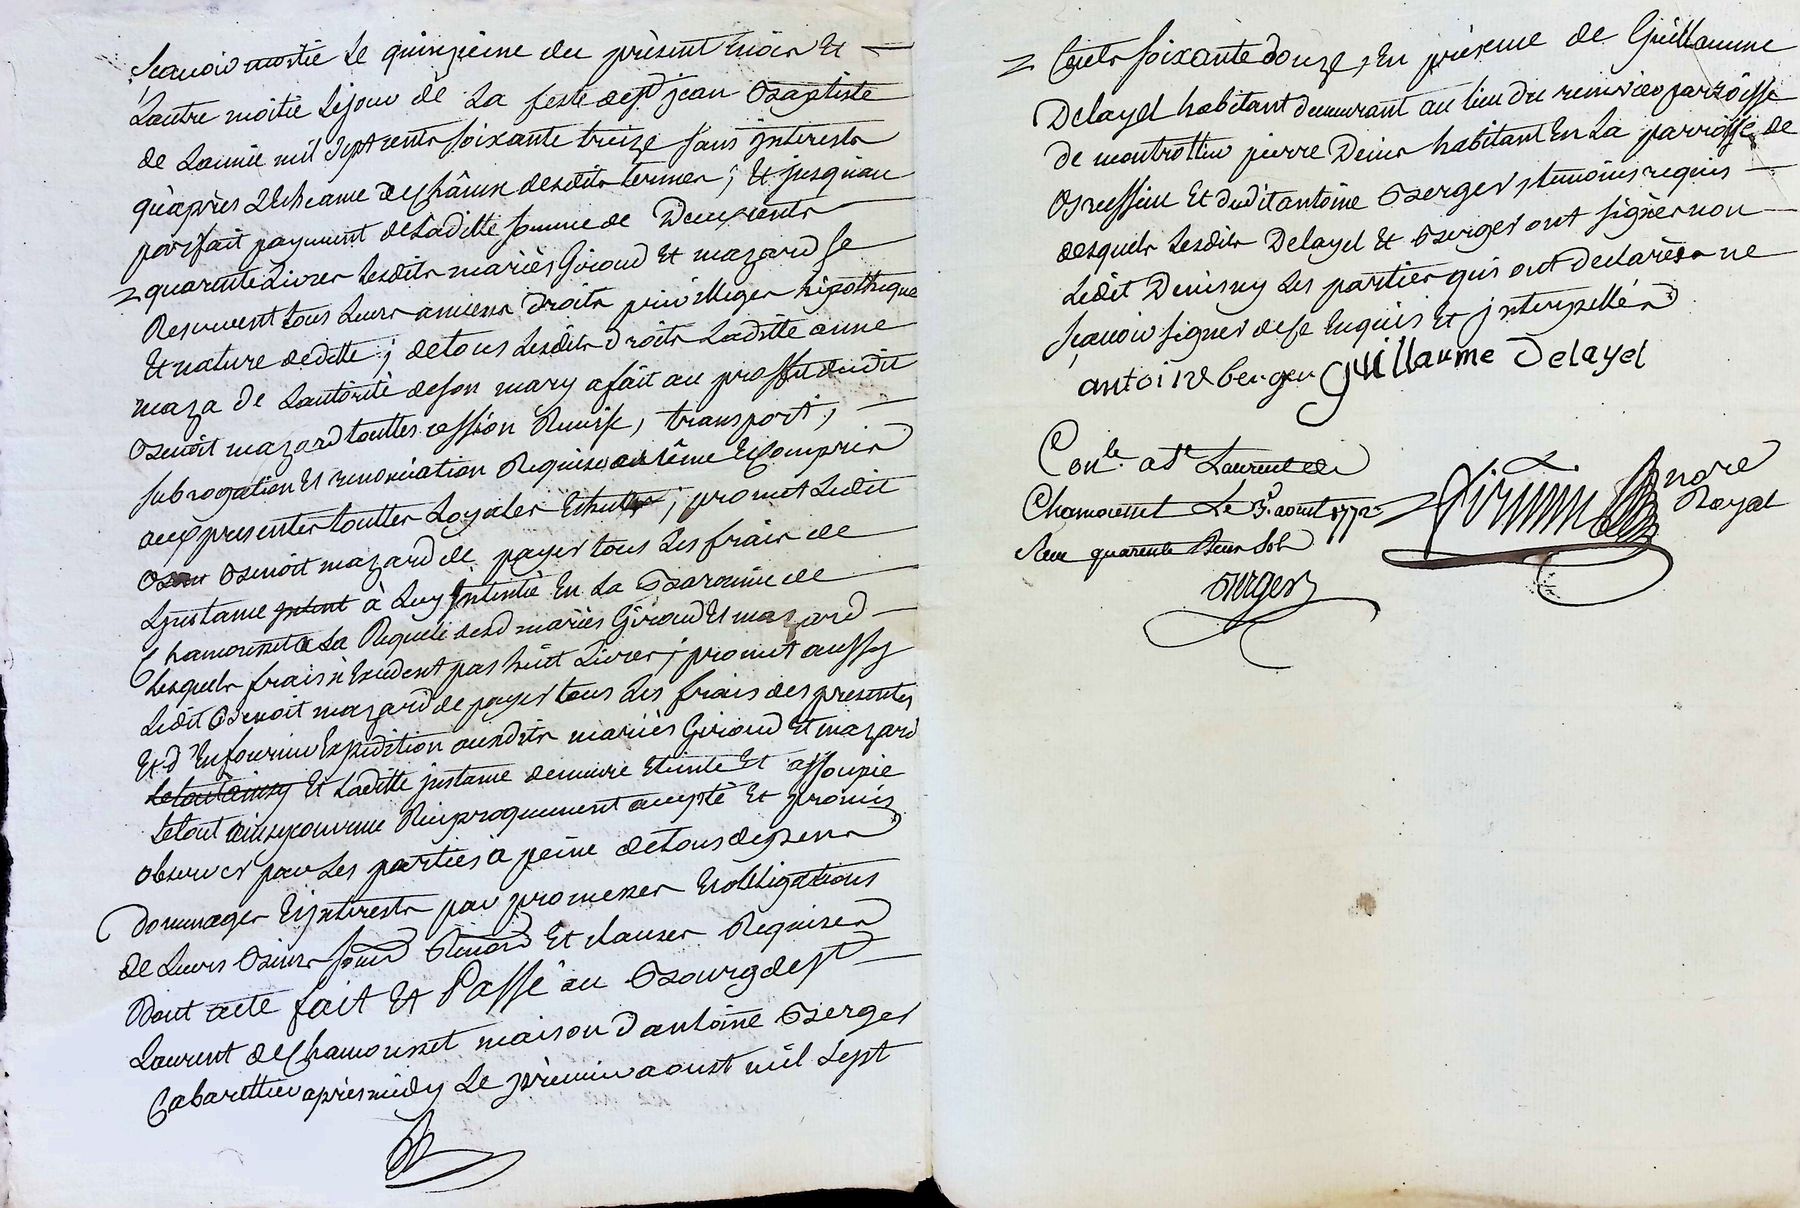 scavoir moitié le quinzieme du présent mois et
Lautre moitié le jour de La feste de st jean Baptiste
de Lannée mil sept cents soixante treize sans interests
qu'après L'Echeance de châcun desdits termes ; et jusqu'au
parfait payment de Laditte somme de Deux cents
quarente Livres lesdits mariés Giroud et mazard se
Reservent tous Leurs anciens droits privilleges hipothèque
et nature de dette ; de tous lesdits droits Laditte anne
maza de Lautorité de son mary a fait au proffit dudit
Benoit mazard touttes cession Remise, transport,
subrogation et renonciation Requises même y compris
aux presentes touttes Loyales ; promet Ledit
Benoit mazard de payer tous Les frais de
Linstance à Luy intentée En La Baronnie de
Chamousset a La Requete desd mariés Giroud et mazard
Lesquels frais n'Excedent pas huit Livres ; promet aussy
Ledit Benoit mazard de payer tous Les frais des presentes
Et d'En fournir Expedition auxdits mariés Giroud Et mazard
Le tout ainsy Et Laditte instance demeure Eteinte Et assoupie
Le tout ainsy convenu Reciproquement accepté Et promis
observer par Les parties a peine de tous depens
dommages Et interests par promesses Et obligations
de Leurs Biens soumd Renond Et clauses Requises
Dont acte fait Et Passé au Bourg de st
Laurent de Chamousset maison d'antoine Berger
Cabarettier après midy Le premier aoust mil sept
Cents soixante douze, En présence de Guillaume
Delayel habitant demeurant au lieu du parroisse
de montrottier pierre Denis habitant En La parroisse de
Brussieu Et dudit antoine Berger, temoins requis
desquels Lesdits Delayel Et Berger ont signés non
Ledit Denis ny Les parties qui ont declarés ne
scavoir signer de ce Enquis Et interpellés
antoine berger Guillaume Delayel
Conle. a St Laurent de
Chamousset Le 3. aout 1772
Reçu quarente deux sols
Berger
nore
Royal